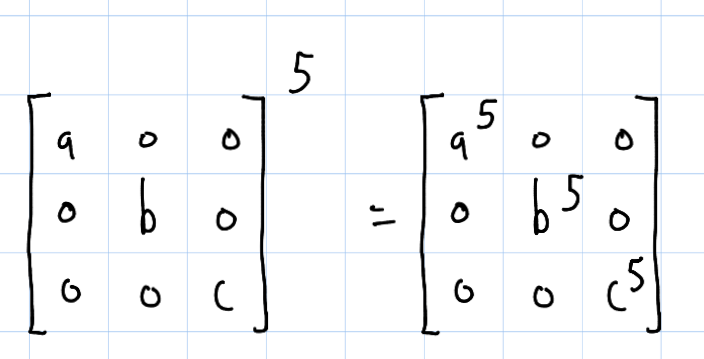 [a 0 0; 0 b 0; 0 0 c]^5 = [a^5 0 0; 0 b^5 0; 0 0 c^5]